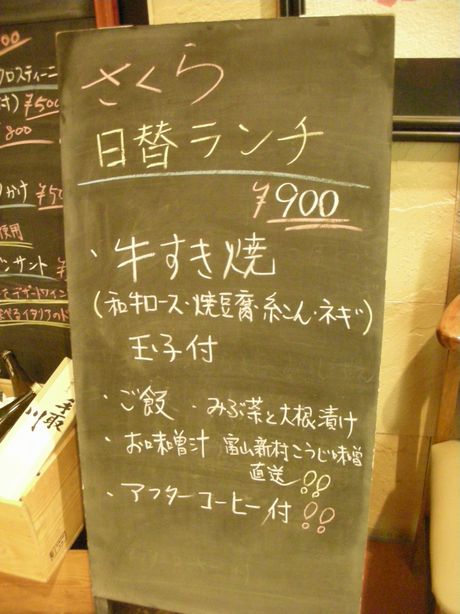 さくら
日替ランチ
¥900
・牛すき焼
(和牛ロース・焼豆腐・糸こん・ネギ)
玉子付
・ご飯 ・みぶ菜と大根漬け
・お味噌汁 富山新村こうじ味噌
直送!!
・アフターコーヒー付!!
00
ロスティーニ
付) ¥500
800
かけ ¥50
使用
ンサント ¥
デザートワイン
イタリアの